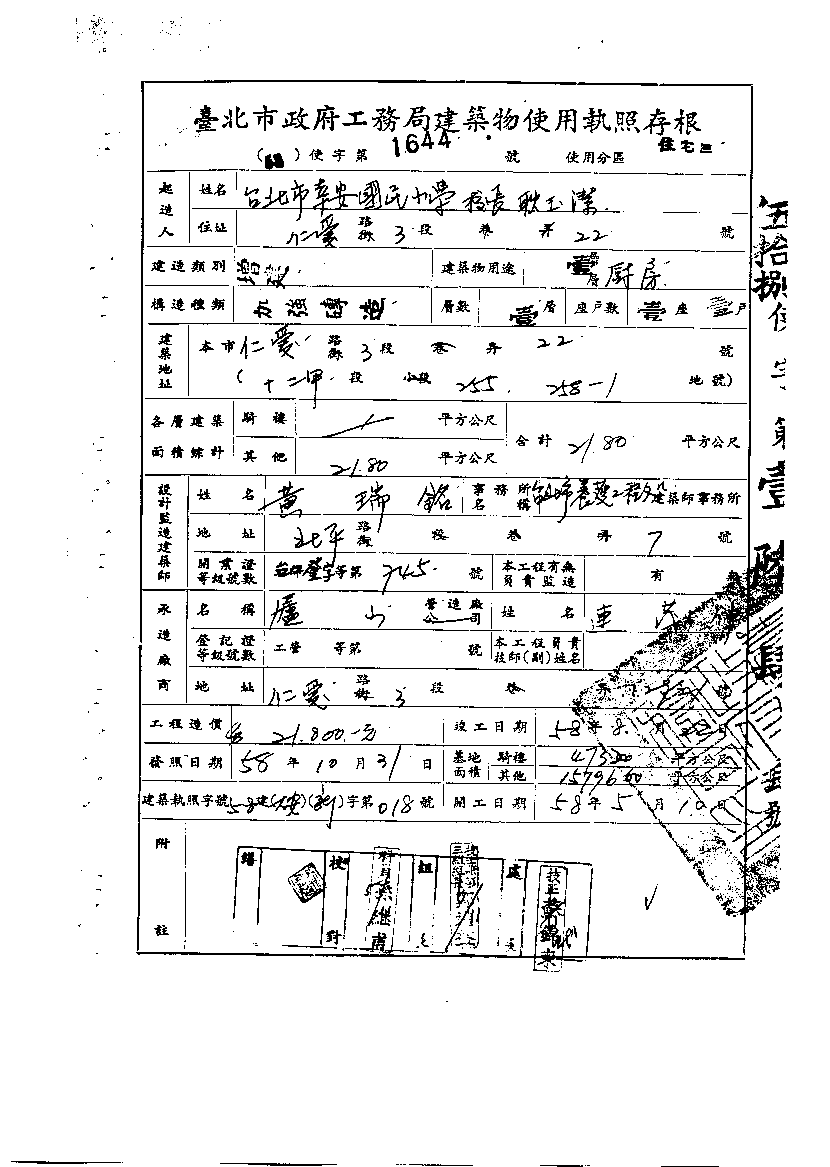 臺北市政府工務局建築物使用執照存根
( ) 使字第 1644 號 使用分區 住宅三
起造人 姓名 台北市幸安國民小學 校長 耿玉潔
住址 仁愛 路街 3 段 巷 弄 22 號
建造類別 增建 建築物用途 壹層廚房
構造種類 加強磚造 層數 壹層 座戶數 壹座 壹戶
建築地址 本市 仁愛 路街 3 段 巷 弄 22 號
(十二甲 段 小段 255. 258-1 地號)
各層建築面積綜計 騎樓 平方公尺 合計 21.80 平方公尺
其他 21.80 平方公尺
設計監造建築師 姓名 黃瑞銘 事務所名稱 建築師事務所
地址 北平 路街 段 巷 弄 7 號
開業證等級號數 等第 745 號 本工程有無負責監造 有
承造廠商 名稱 廬山 營造廠公司 姓名 車
登記證等級號數 工營 等第 號 本工程負責技師(副)姓名
地址 仁愛 路街 3 段 巷 號
工程造價 21.800.元 竣工日期 58年8月 日
發照日期 58年10月31日 基地面積 騎樓 473.00 平方公尺
其他 15796.00 平方公尺
建築執照字號 58建(大安)( )字第018號 開工日期 58年5月10日
附註
繕 校對 組長 處長
伍拾捌使字第壹陸肆